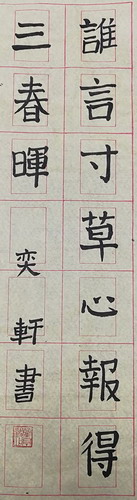 誰言寸草心報得
三春暉
奕軒書